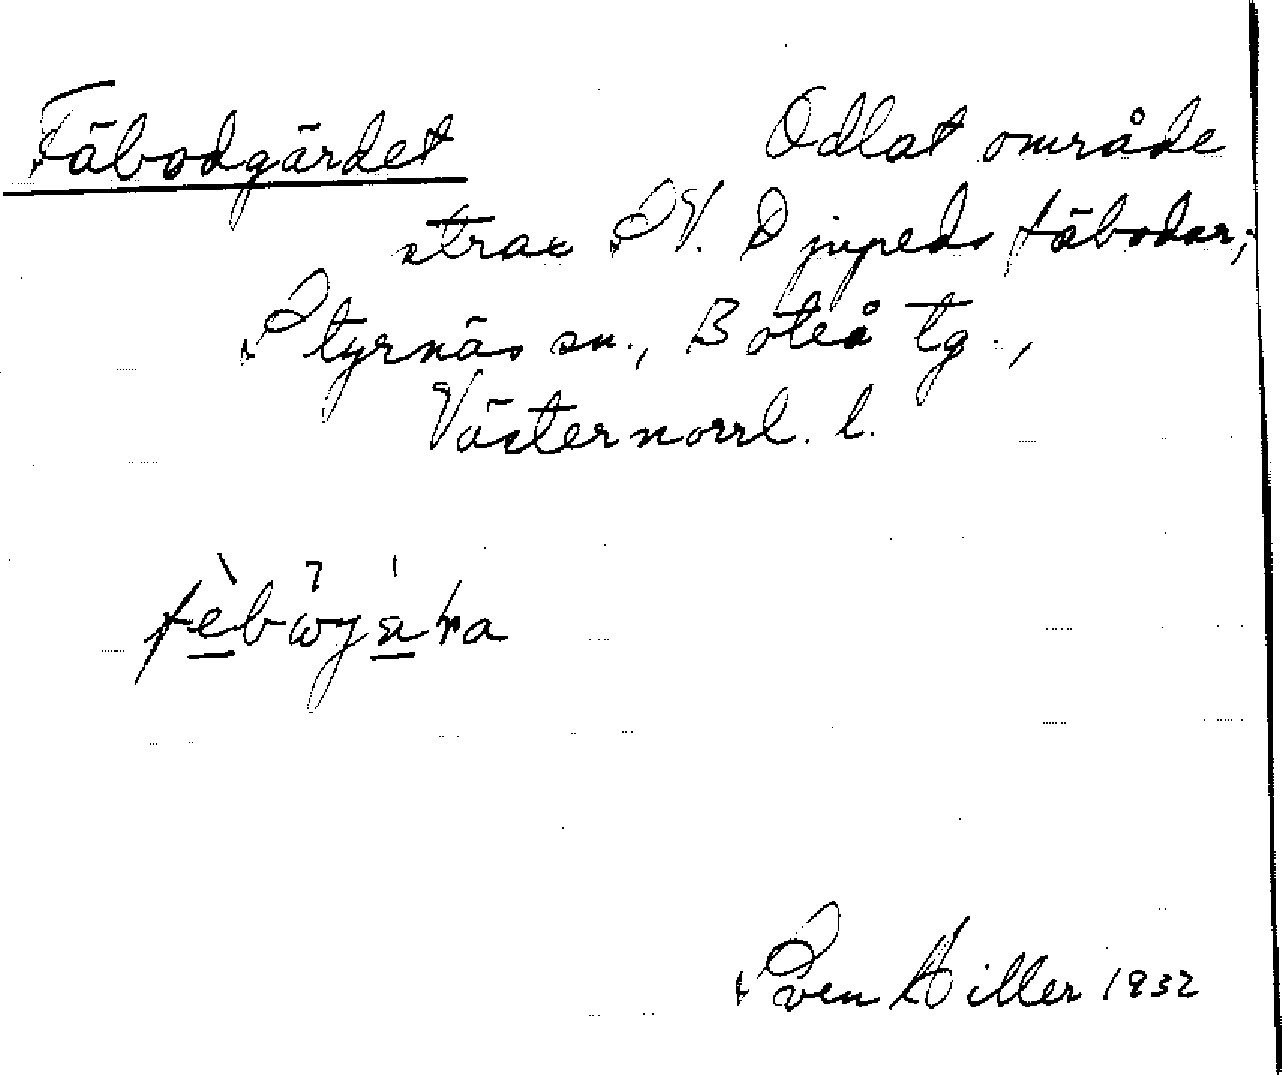 Fäbodgärdet Odlat område
strax SV. Djupeds fäbodar;
Styrnäs sn., Boteå tg.,
Västernorrl. l.
Sven Hiller 1932